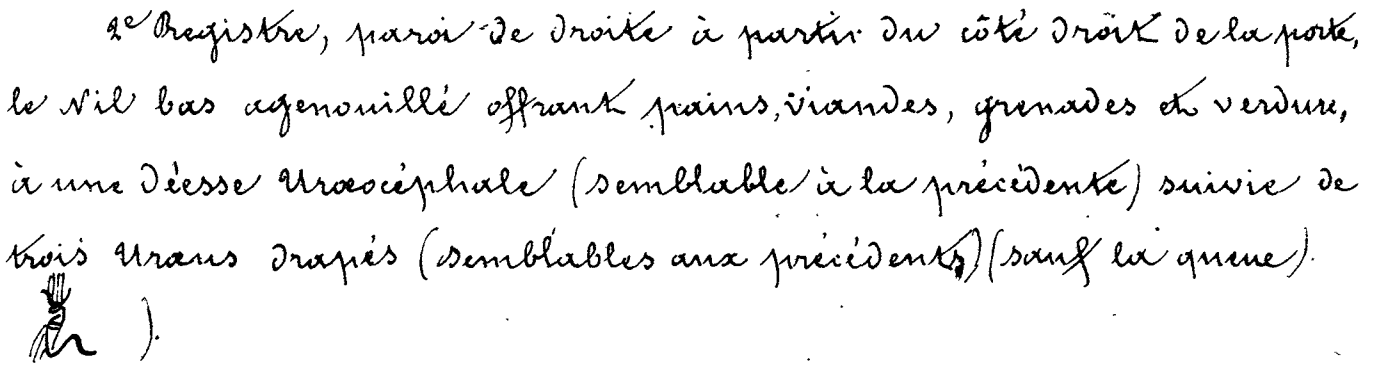 2e Registre, paroi de droite à partir du côté droit de la porte,
le Nil bas agenouillé offrant pains, viandes, grenades et verdure,
à une Déesse Uræocéphale (semblable à la précédente) suivie de
trois Uræus drapés (semblables aux précédents) (sauf la queue).
).